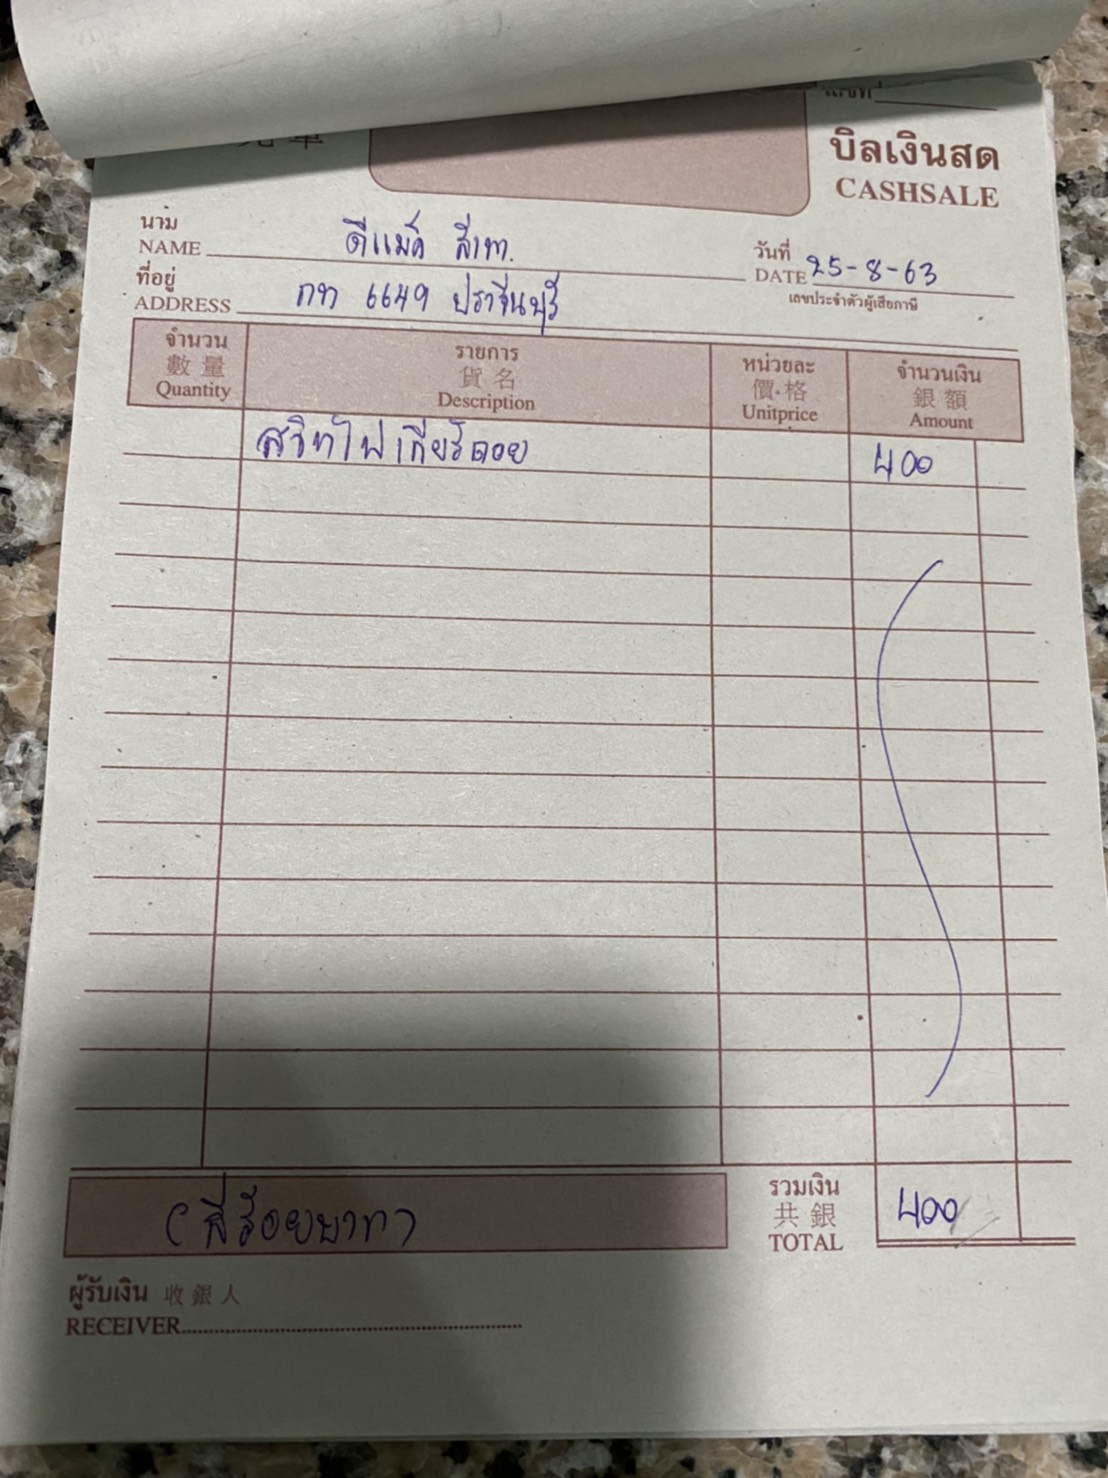 เลขที่
บิลเงินสด
CASHSALE
นาม
NAME ดีแม็ค สีเทา
วันที่
DATE 25-8-63
ที่อยู่
ADDRESS กท 6649 ปราจีนบุรี
เลขประจำตัวผู้เสียภาษี
จำนวน รายการ หน่วยละ จำนวนเงิน
數量 貨名 價·格 銀額
Quantity Description Unitprice Amount
สวิทไฟเกียร์ถอย 400
รวมเงิน
(สี่ร้อยบาท) 共銀 400
TOTAL
ผู้รับเงิน 收銀人
RECEIVER